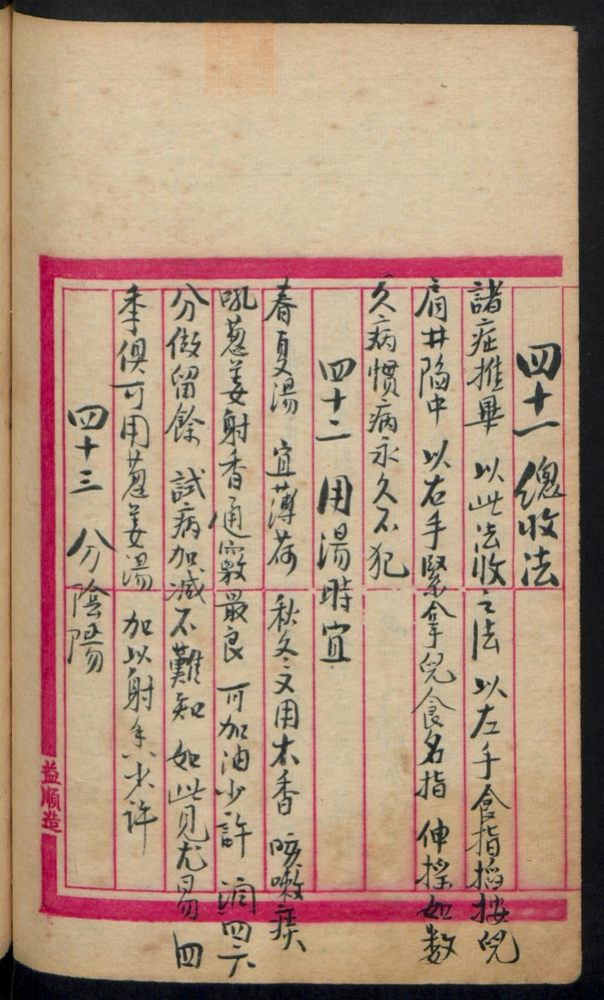 四十一 總收法
諸症推畢 以此法收之法 以左手食指掐按兒
肩井陷中 以右手緊拿兒食名指 伸搖如數
久病慣病永久不犯
四十二 用湯時宜
春夏湯 宜薄荷 秋冬又用木香 咳嗽痰
吼葱姜射香通竅最良 可加油少許 四六
分做留餘 試病加減不難知 如此見尤易 四
季俱可用葱姜湯 加以射香少許
四十三 分陰陽
益順造